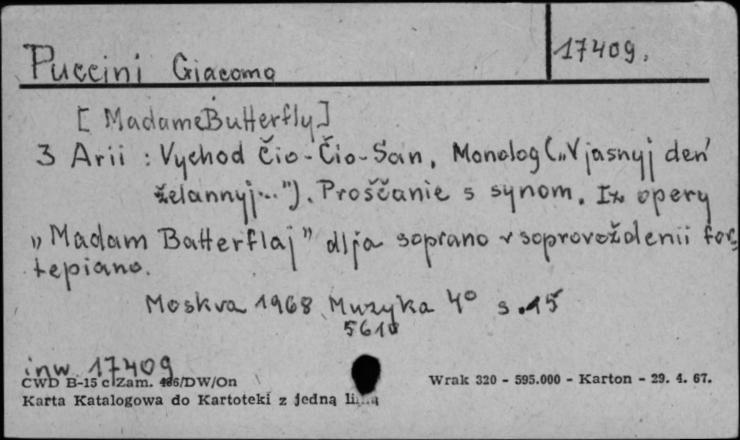 Puccini Giacomo
17409.
[Madame Butterfly]
3 Arii : Vychod Čio-Čio-San. Monolog („V jasnyj den'
želannyj..."). Proščanie s synom. Iz opery
„Madam Batterflaj" dlja soprano v soprovoždenii for-
tepiano.
Moskva 1968 Muzyka 4° s. 15
5610
inw. 17409
CWD B-15 c Zam. 486/DW/On
Wrak 320 - 595.000 - Karton - 29. 4. 67.
Karta Katalogowa do Kartoteki z jedną linią